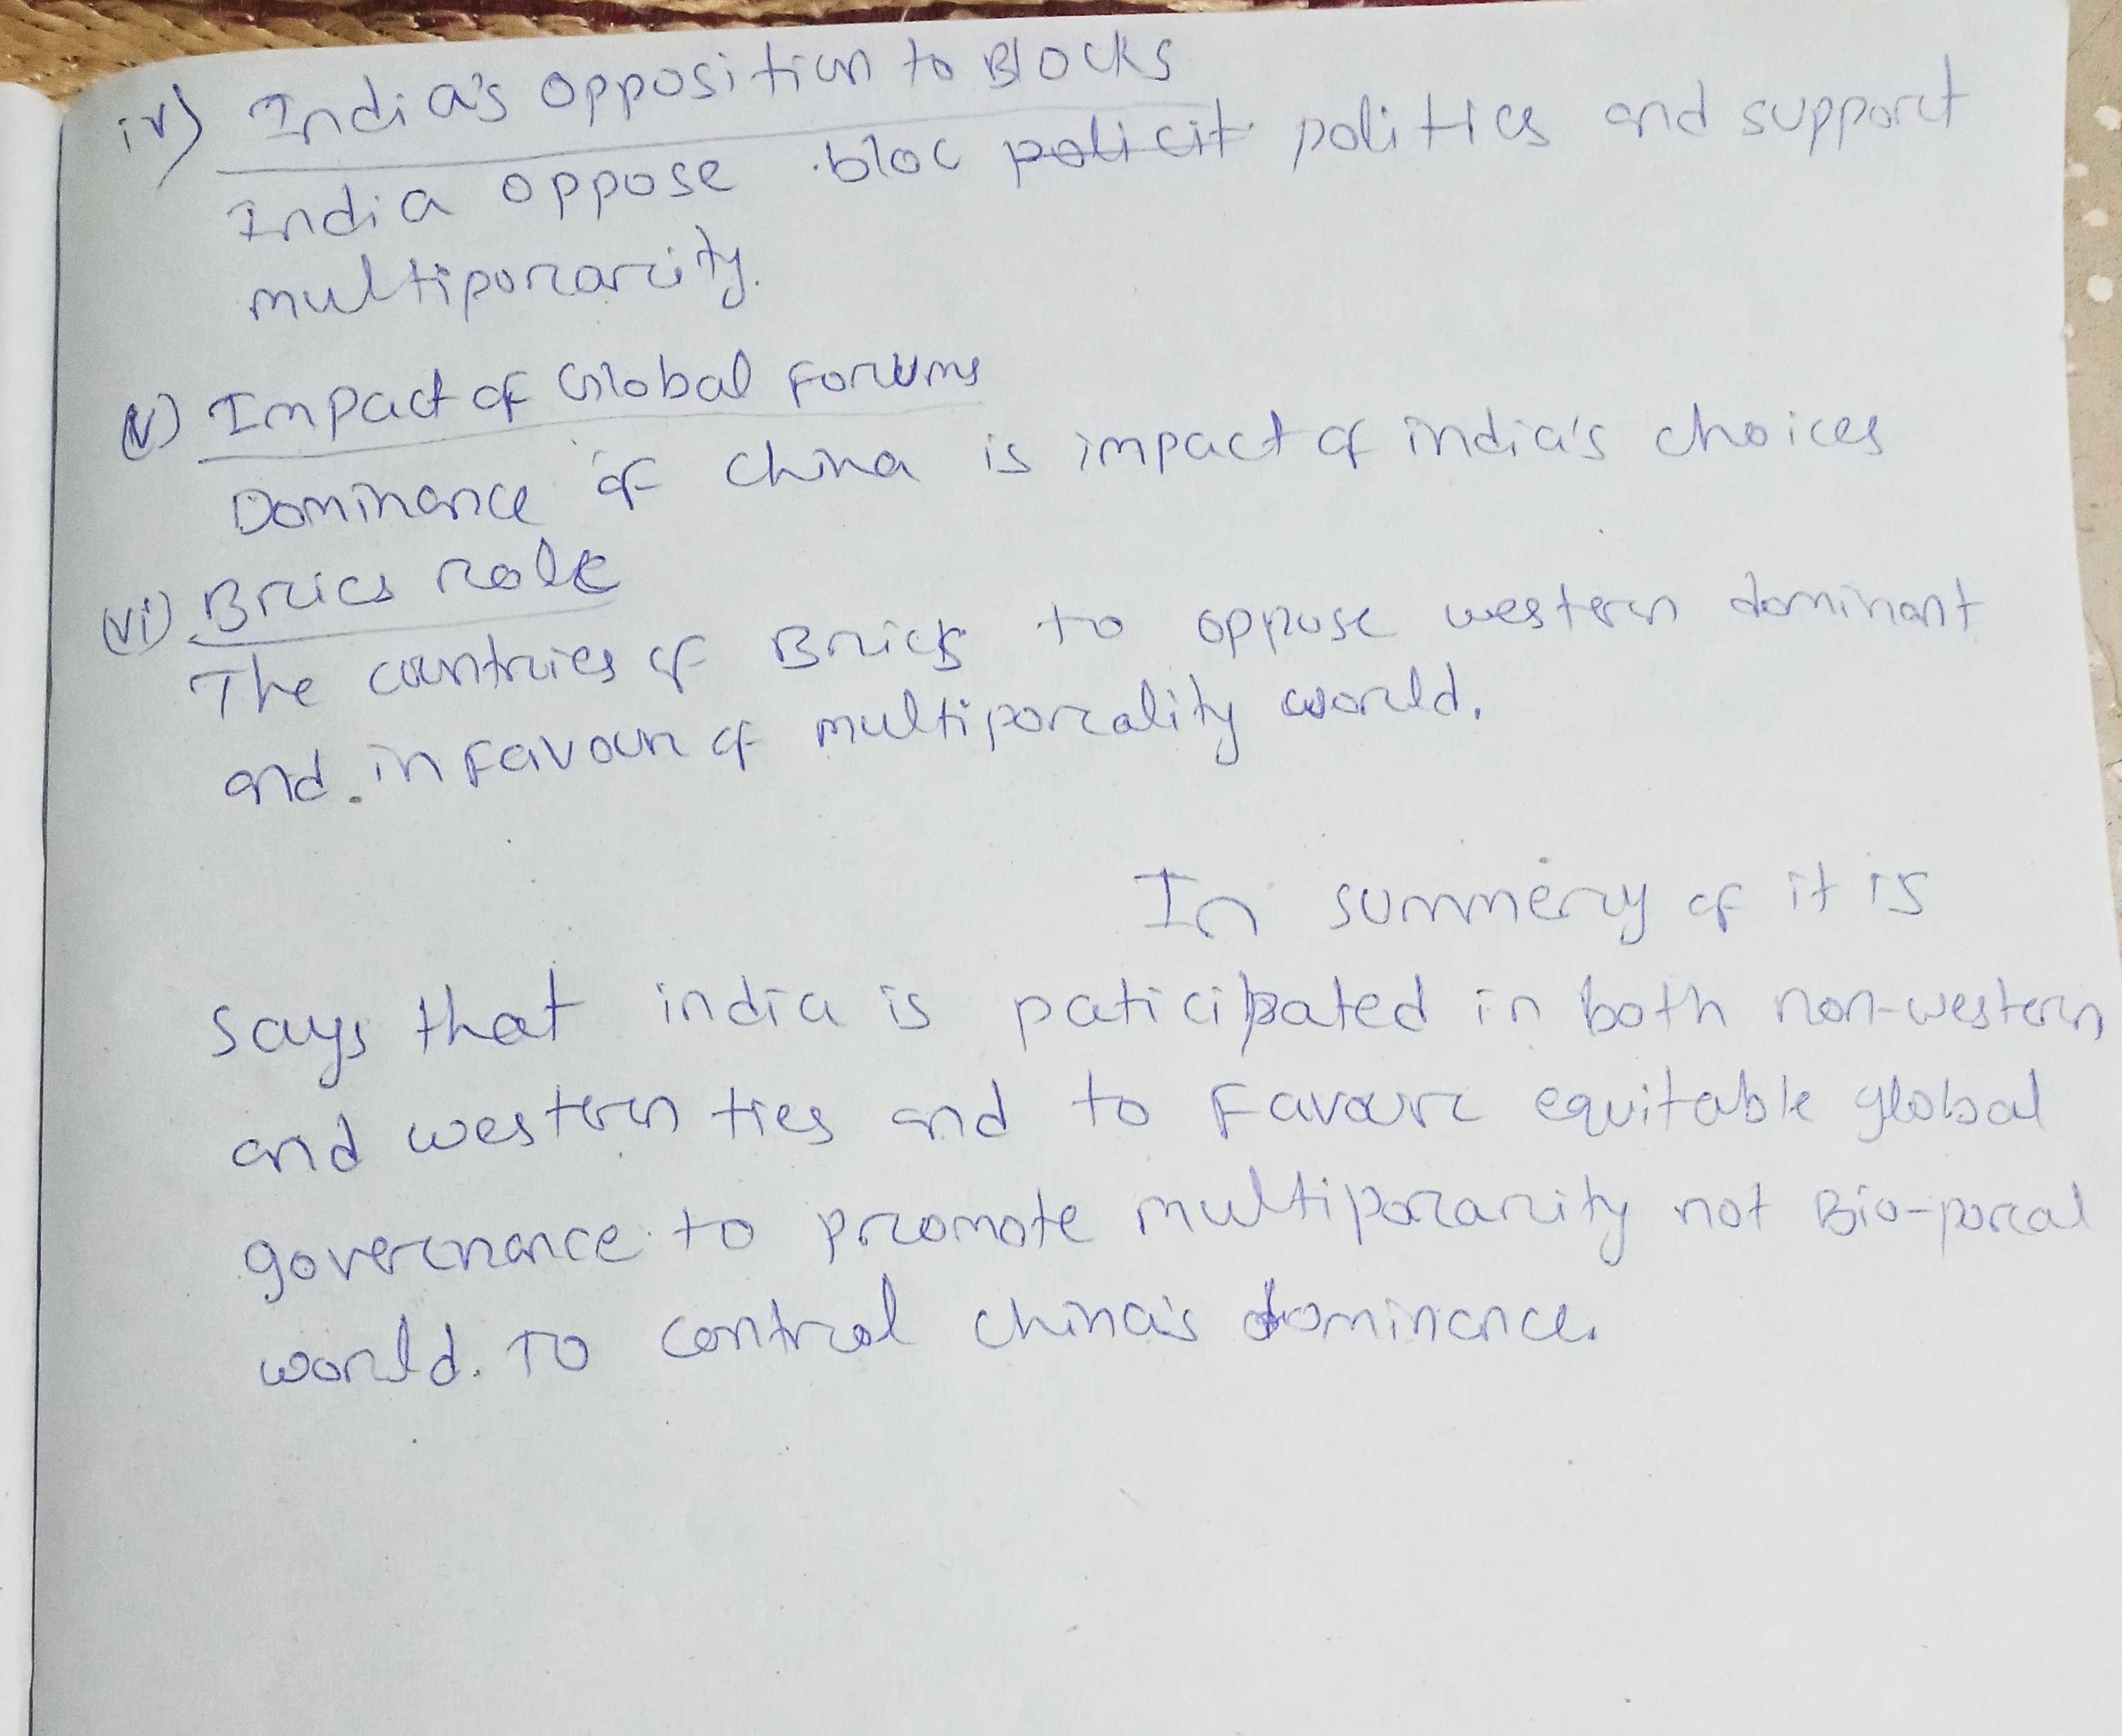 iv) India's opposition to Blocks
India oppose bloc policit politics and support
multiporarity.
(v) Impact of Global Forums
Dominance of China is impact of india's choices
(vi) Brics role
The countries of Brics to oppose western dominant
and in favour of multiporality world.
In summery of it is
says that india is paticipated in both non-western
and western ties and to favour equitable global
governance to promote multiporarity not Bio-poral
world. To control china's dominance.